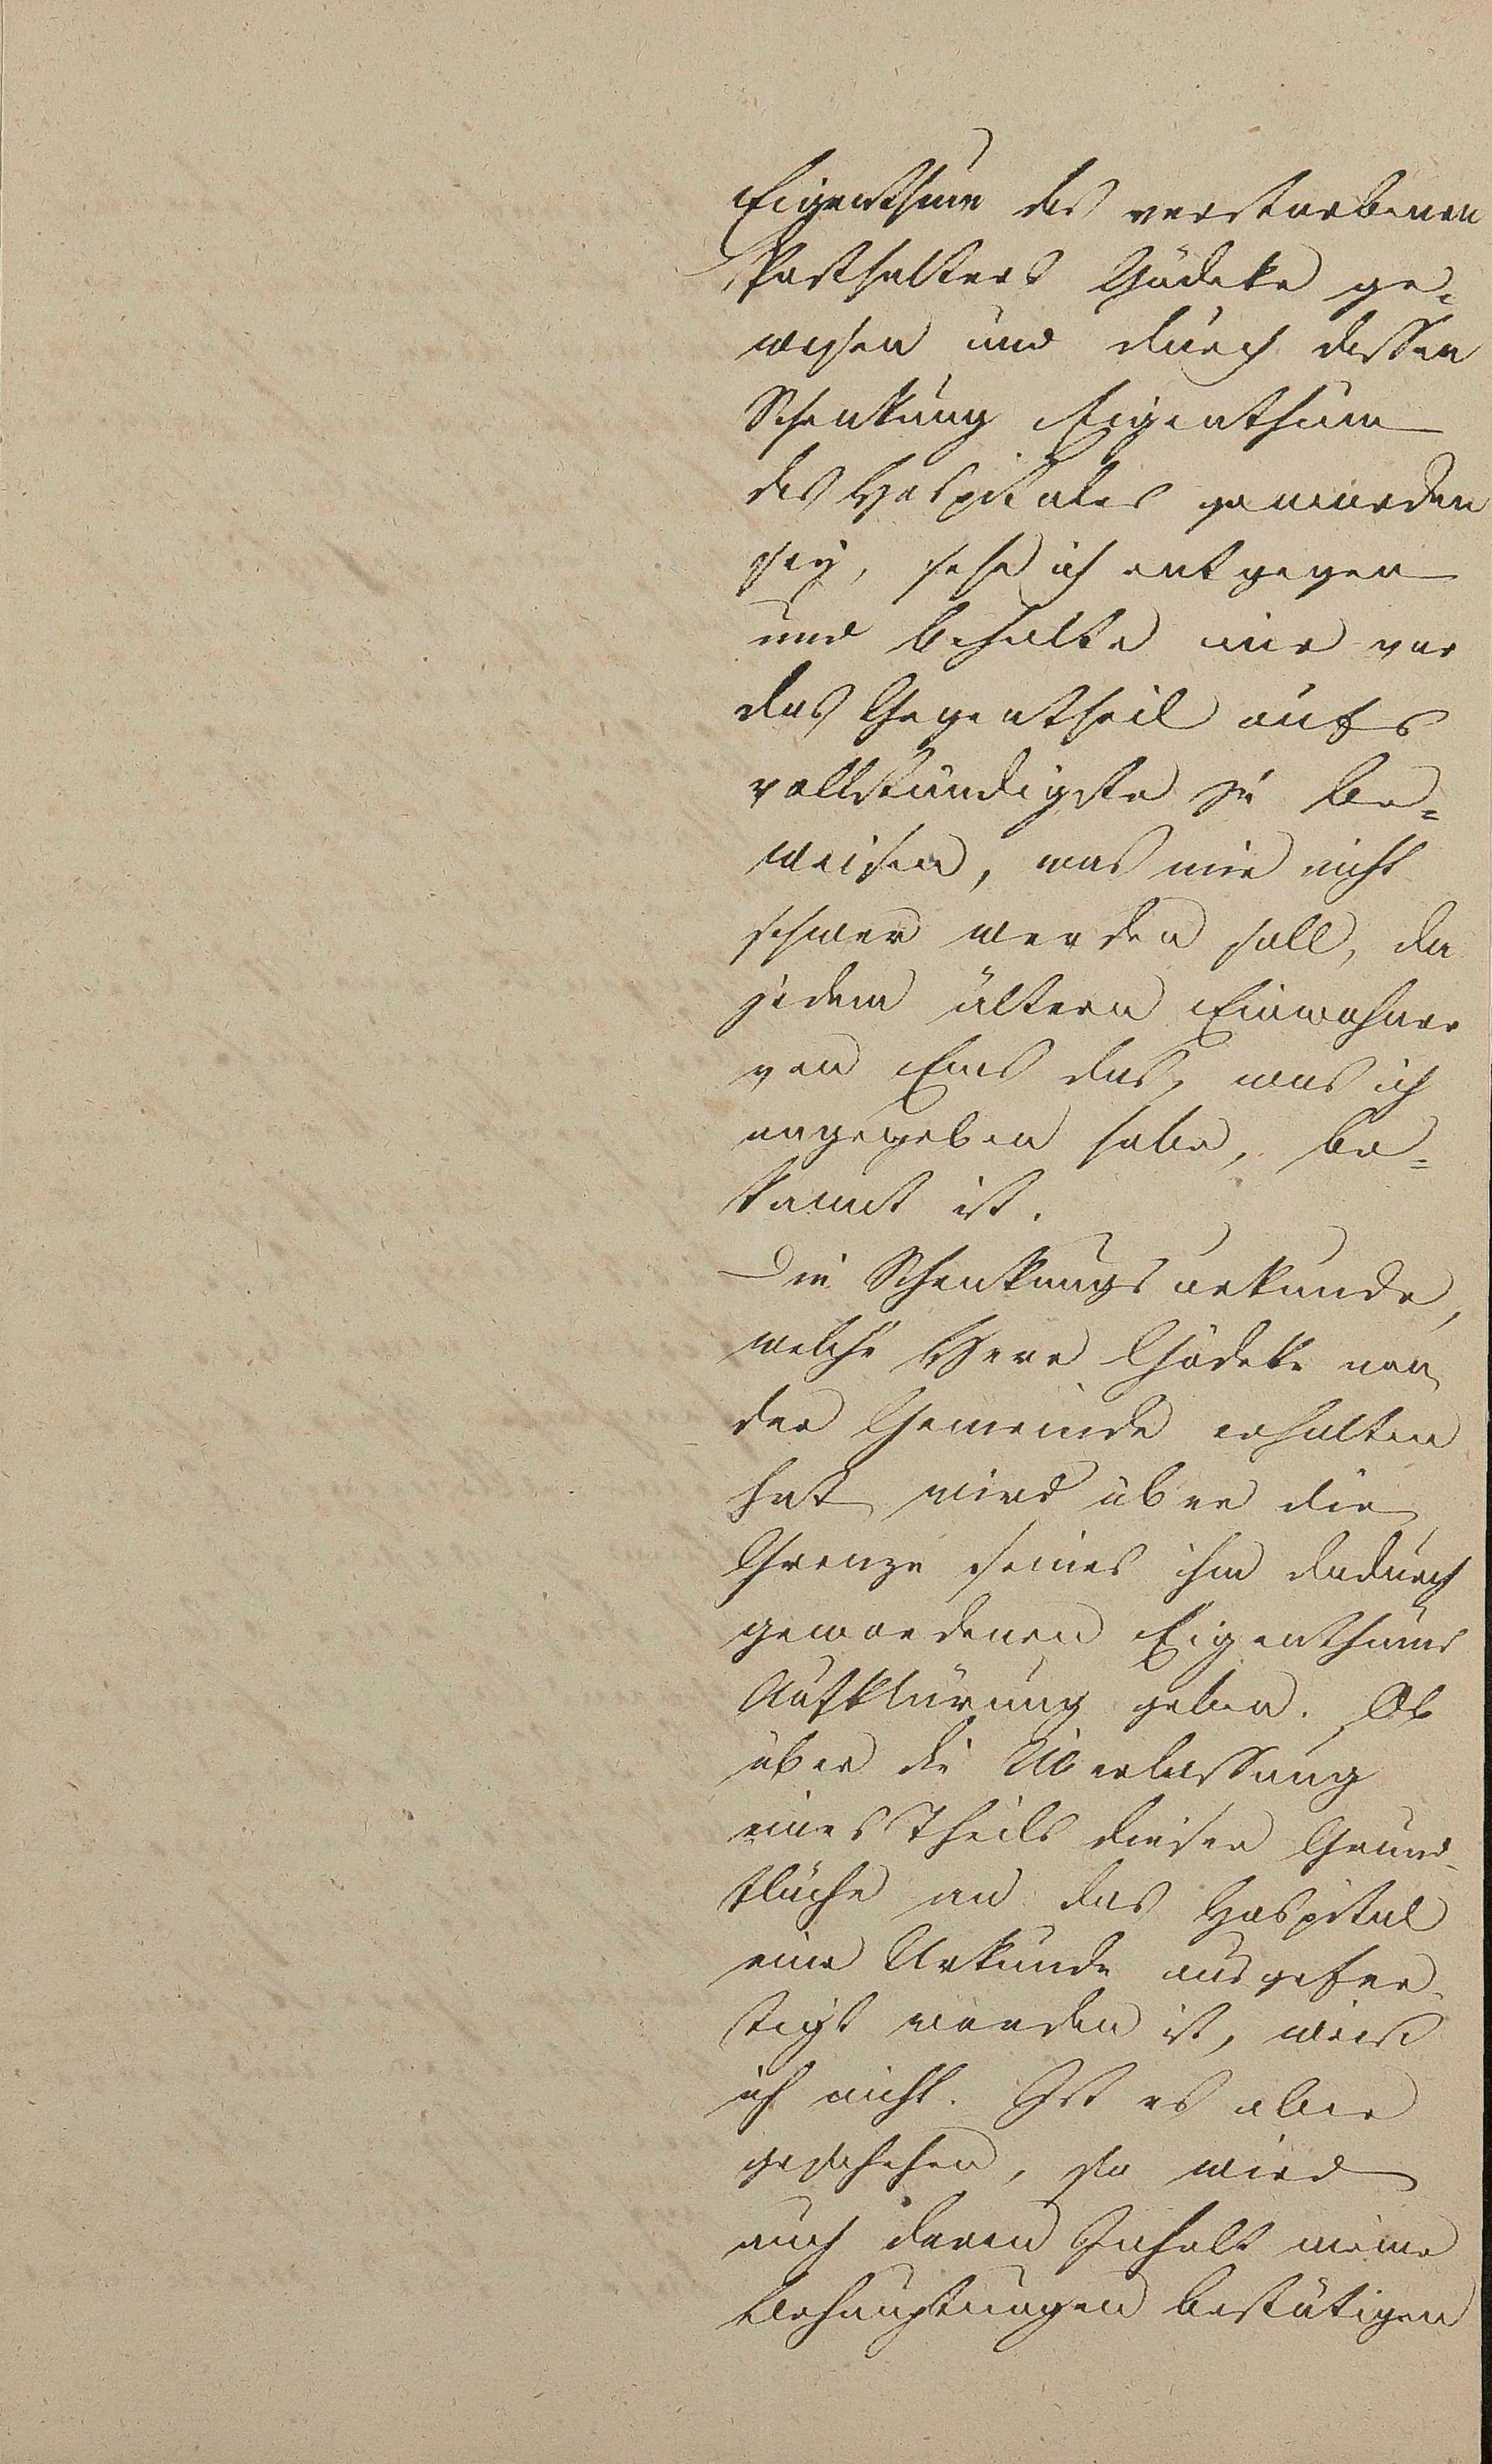 Eigenthum des verstorbenen
Posthalters Gödeke ge-
wesen und durch dessen
Schenkung Eigenthum
des Hospitales geworden
sey, sehe ich entgegen
und behalte mir vor
das Gegentheil aufs
vollständigste zu be=
weisen, was mir nicht
schwer werden soll, da
jedem ältern Einwohner
von Ems das, was ich
angegeben habe, be=
kannt ist.
Die Schenkungsurkunde,
welche Herr Gödeke von
der Gemeinde erhalten
hat wird über die
Grenze seines ihm dadurch
gewordenen Eigenthums
Aufklärung geben. Ob
über die Überlassung
eines Theils dieser Grund-
fläche an das Hospital
eine Urkunde ausgefer-
tigt worden ist, weiß
ich nicht. Ist es aber
geschehen, so wird
auch deren Inhalt meine
Behauptungen bestätigen